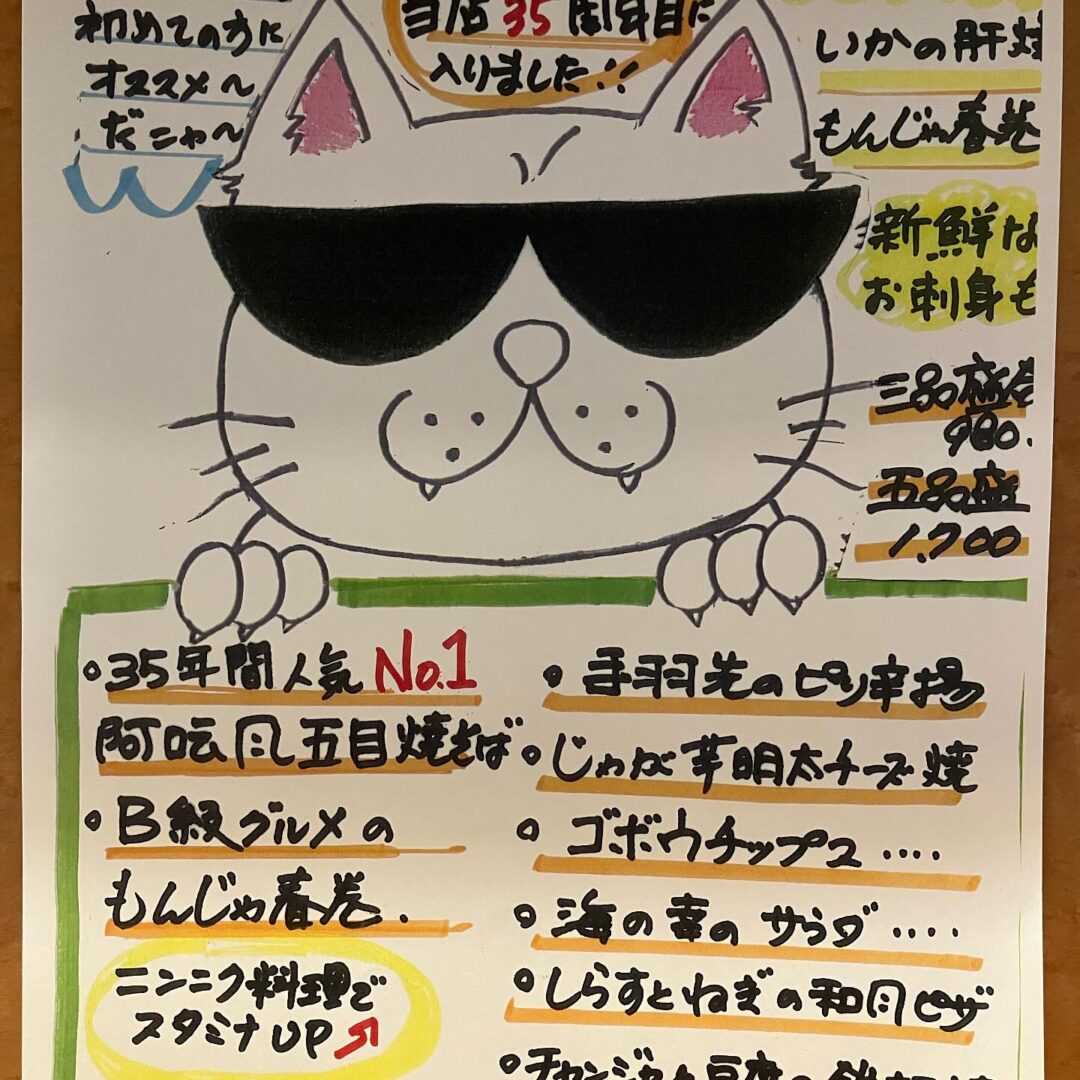 初めての方に
オススメ〜
だニャ〜
当店35周年目に
入りました!!
いかの肝焼
もんじゃ春巻
新鮮な
お刺身も
三品盛
980.
五品盛
1,700
35年間人気No.1
阿吽風五目焼そば
B級グルメの
もんじゃ春巻.
ニンニク料理で
スタミナUP
手羽先のピリ辛揚
じゃが芋明太チーズ焼
ゴボウチップス ....
海の幸のサラダ ....
しらすとねぎの和風ピザ
チャンジャと豆腐の